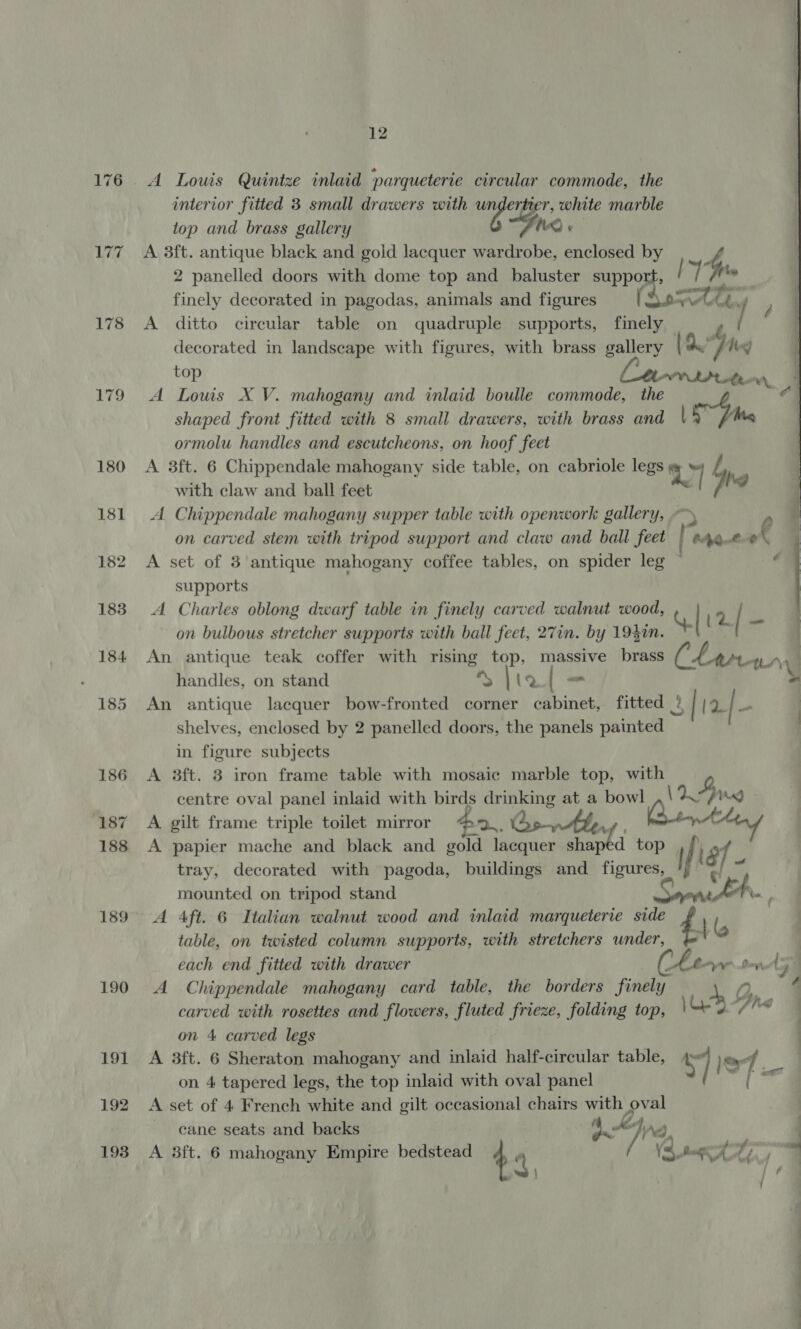 12
176 A Louis Quintze inlaid parqueterie circular commode, the
interior fitted 3 small drawers with undertier, white marble
top and brass gallery 6 Gns.
177 A 3ft. antique black and gold lacquer wardrobe, enclosed by
2 panelled doors with dome top and baluster support, 17 Gns
finely decorated in pagodas, animals and figures
178 A ditto circular table on quadruple supports, finely
decorated in landscape with figures, with brass gallery 12 Gns
top
179 A Louis XV. mahogany and inlaid boulle commode, the
shaped front fitted with 8 small drawers, with brass and 15 Gns
ormolu handles and escutcheons, on hoof feet
180 A 3ft. 6 Chippendale mahogany side table, on cabriole legs
with claw and ball feet Gns
181 A Chippendale mahogany supper table with openwork gallery,
on carved stem with tripod support and claw and ball feet
182 A set of 3 antique mahogany coffee tables, on spider leg
supports
183 A Charles oblong dwarf table in finely carved walnut wood,
on bulbous stretcher supports with ball feet, 27in. by 19½in. 4/12/-
184 An antique teak coffer with rising top, massive brass
handles, on stand 3/12/-
185 An antique lacquer bow-fronted corner cabinet, fitted 2/12/-
shelves, enclosed by 2 panelled doors, the panels painted
in figure subjects
186 A 3ft. 3 iron frame table with mosaic marble top, with
centre oval panel inlaid with birds drinking at a bowl 12 Gns
187 A gilt frame triple toilet mirror
188 A papier mache and black and gold lacquer shaped top
tray, decorated with pagoda, buildings and figures,
mounted on tripod stand
189 A 4ft. 6 Italian walnut wood and inlaid marqueterie side
table, on twisted column supports, with stretchers under,
each end fitted with drawer
190 A Chippendale mahogany card table, the borders finely
carved with rosettes and flowers, fluted frieze, folding top, Gns
on 4 carved legs
191 A 3ft. 6 Sheraton mahogany and inlaid half-circular table,
on 4 tapered legs, the top inlaid with oval panel
192 A set of 4 French white and gilt occasional chairs with oval
cane seats and backs Gns
193 A 3ft. 6 mahogany Empire bedstead